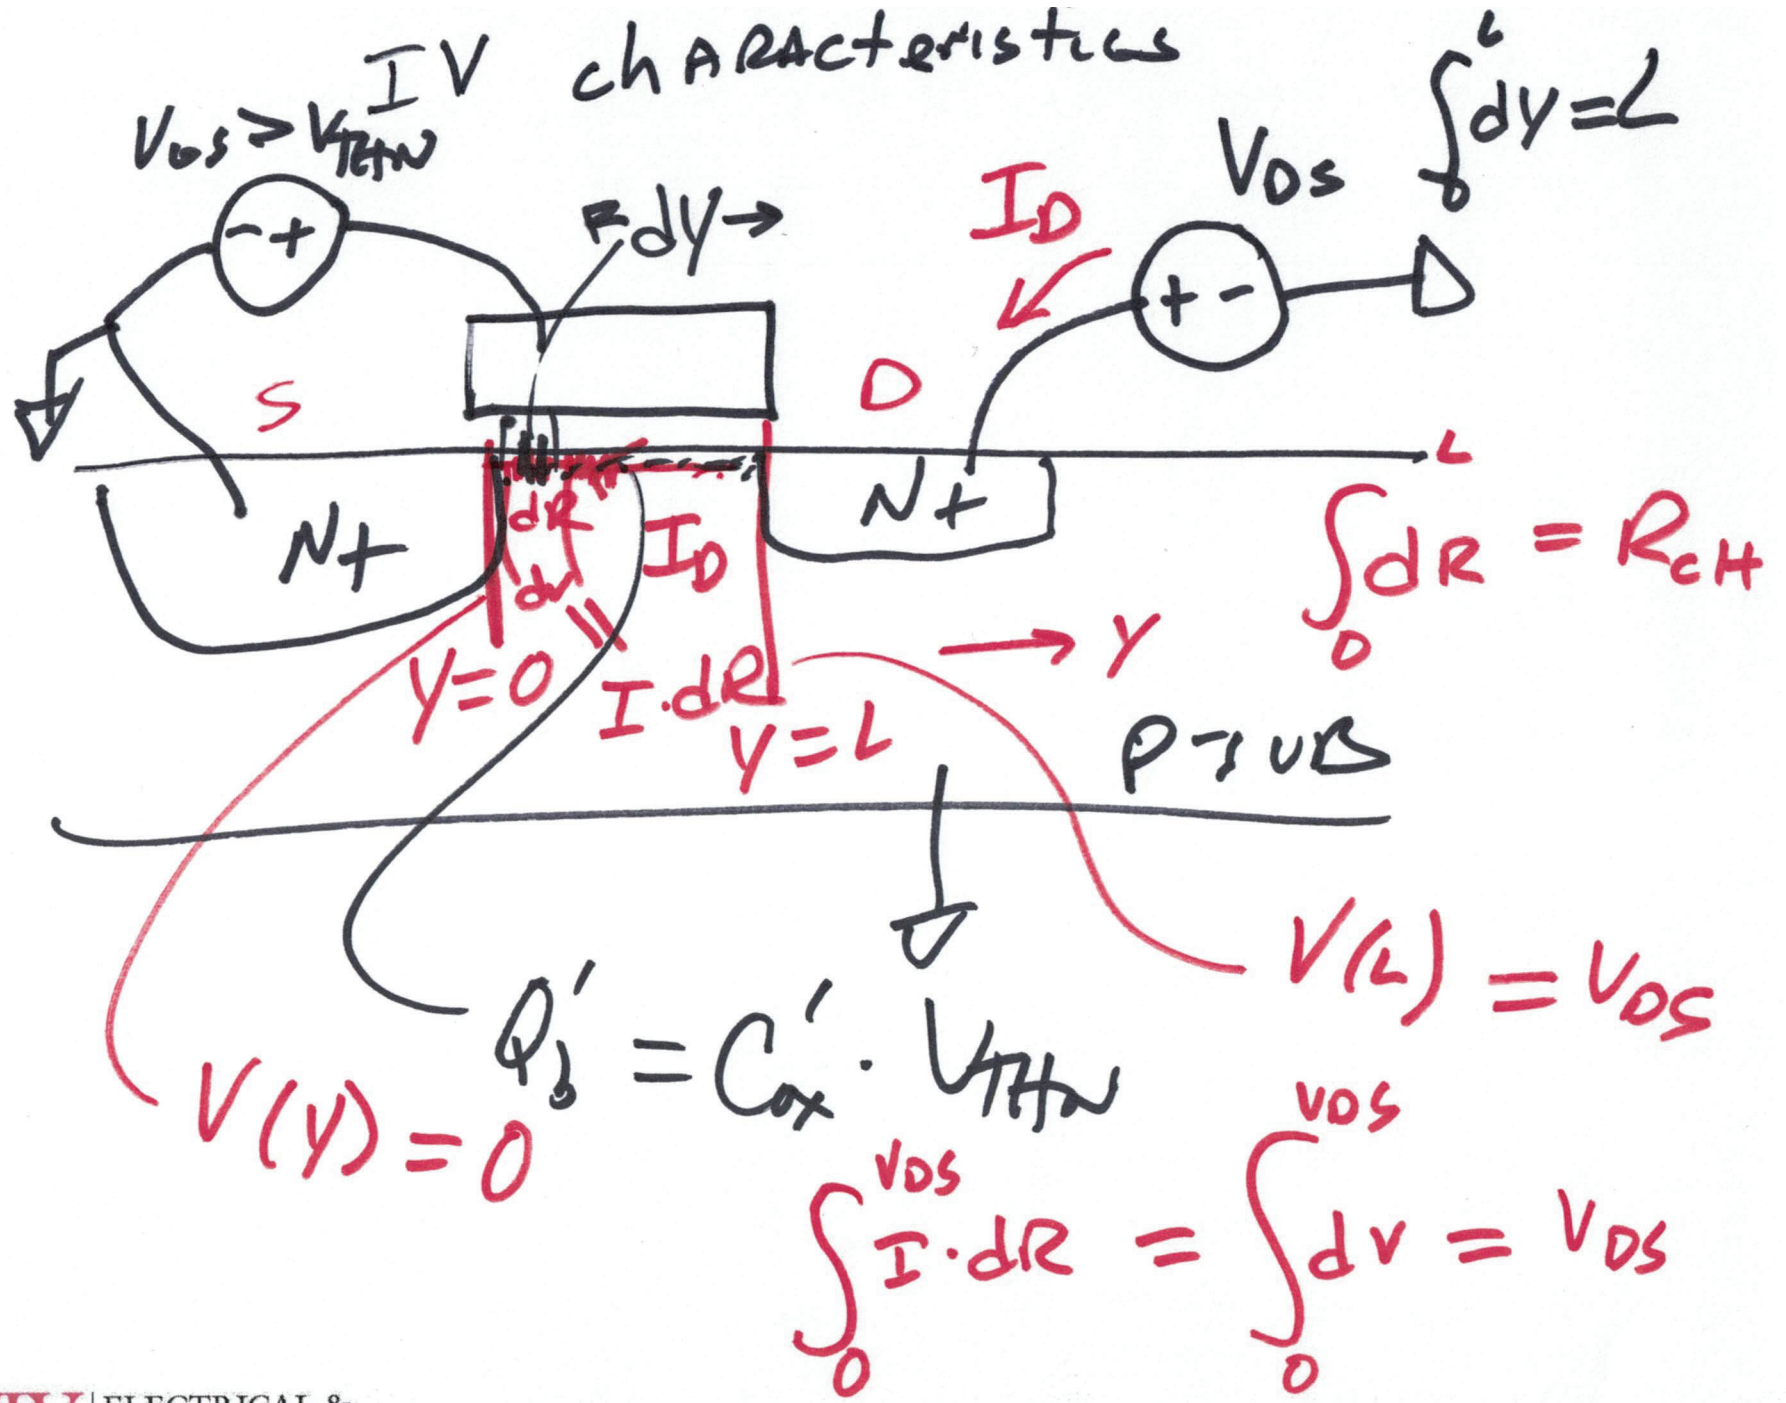 IV characteristics
VGS > VTHN
∫₀ᴸ dy = L
VDS
ID
dy →
- +
+ -
S
D
N+
N+
dR
dv
ID
∫₀ᴸ dR = RCH
→ Y
Y=0
I·dR
Y=L
P-SUB
V(L) = VDS
Q'b = C'ox · VTHN
V(Y) = 0
∫₀ⱽᴰˢ I·dR = ∫₀ⱽᴰˢ dv = VDS